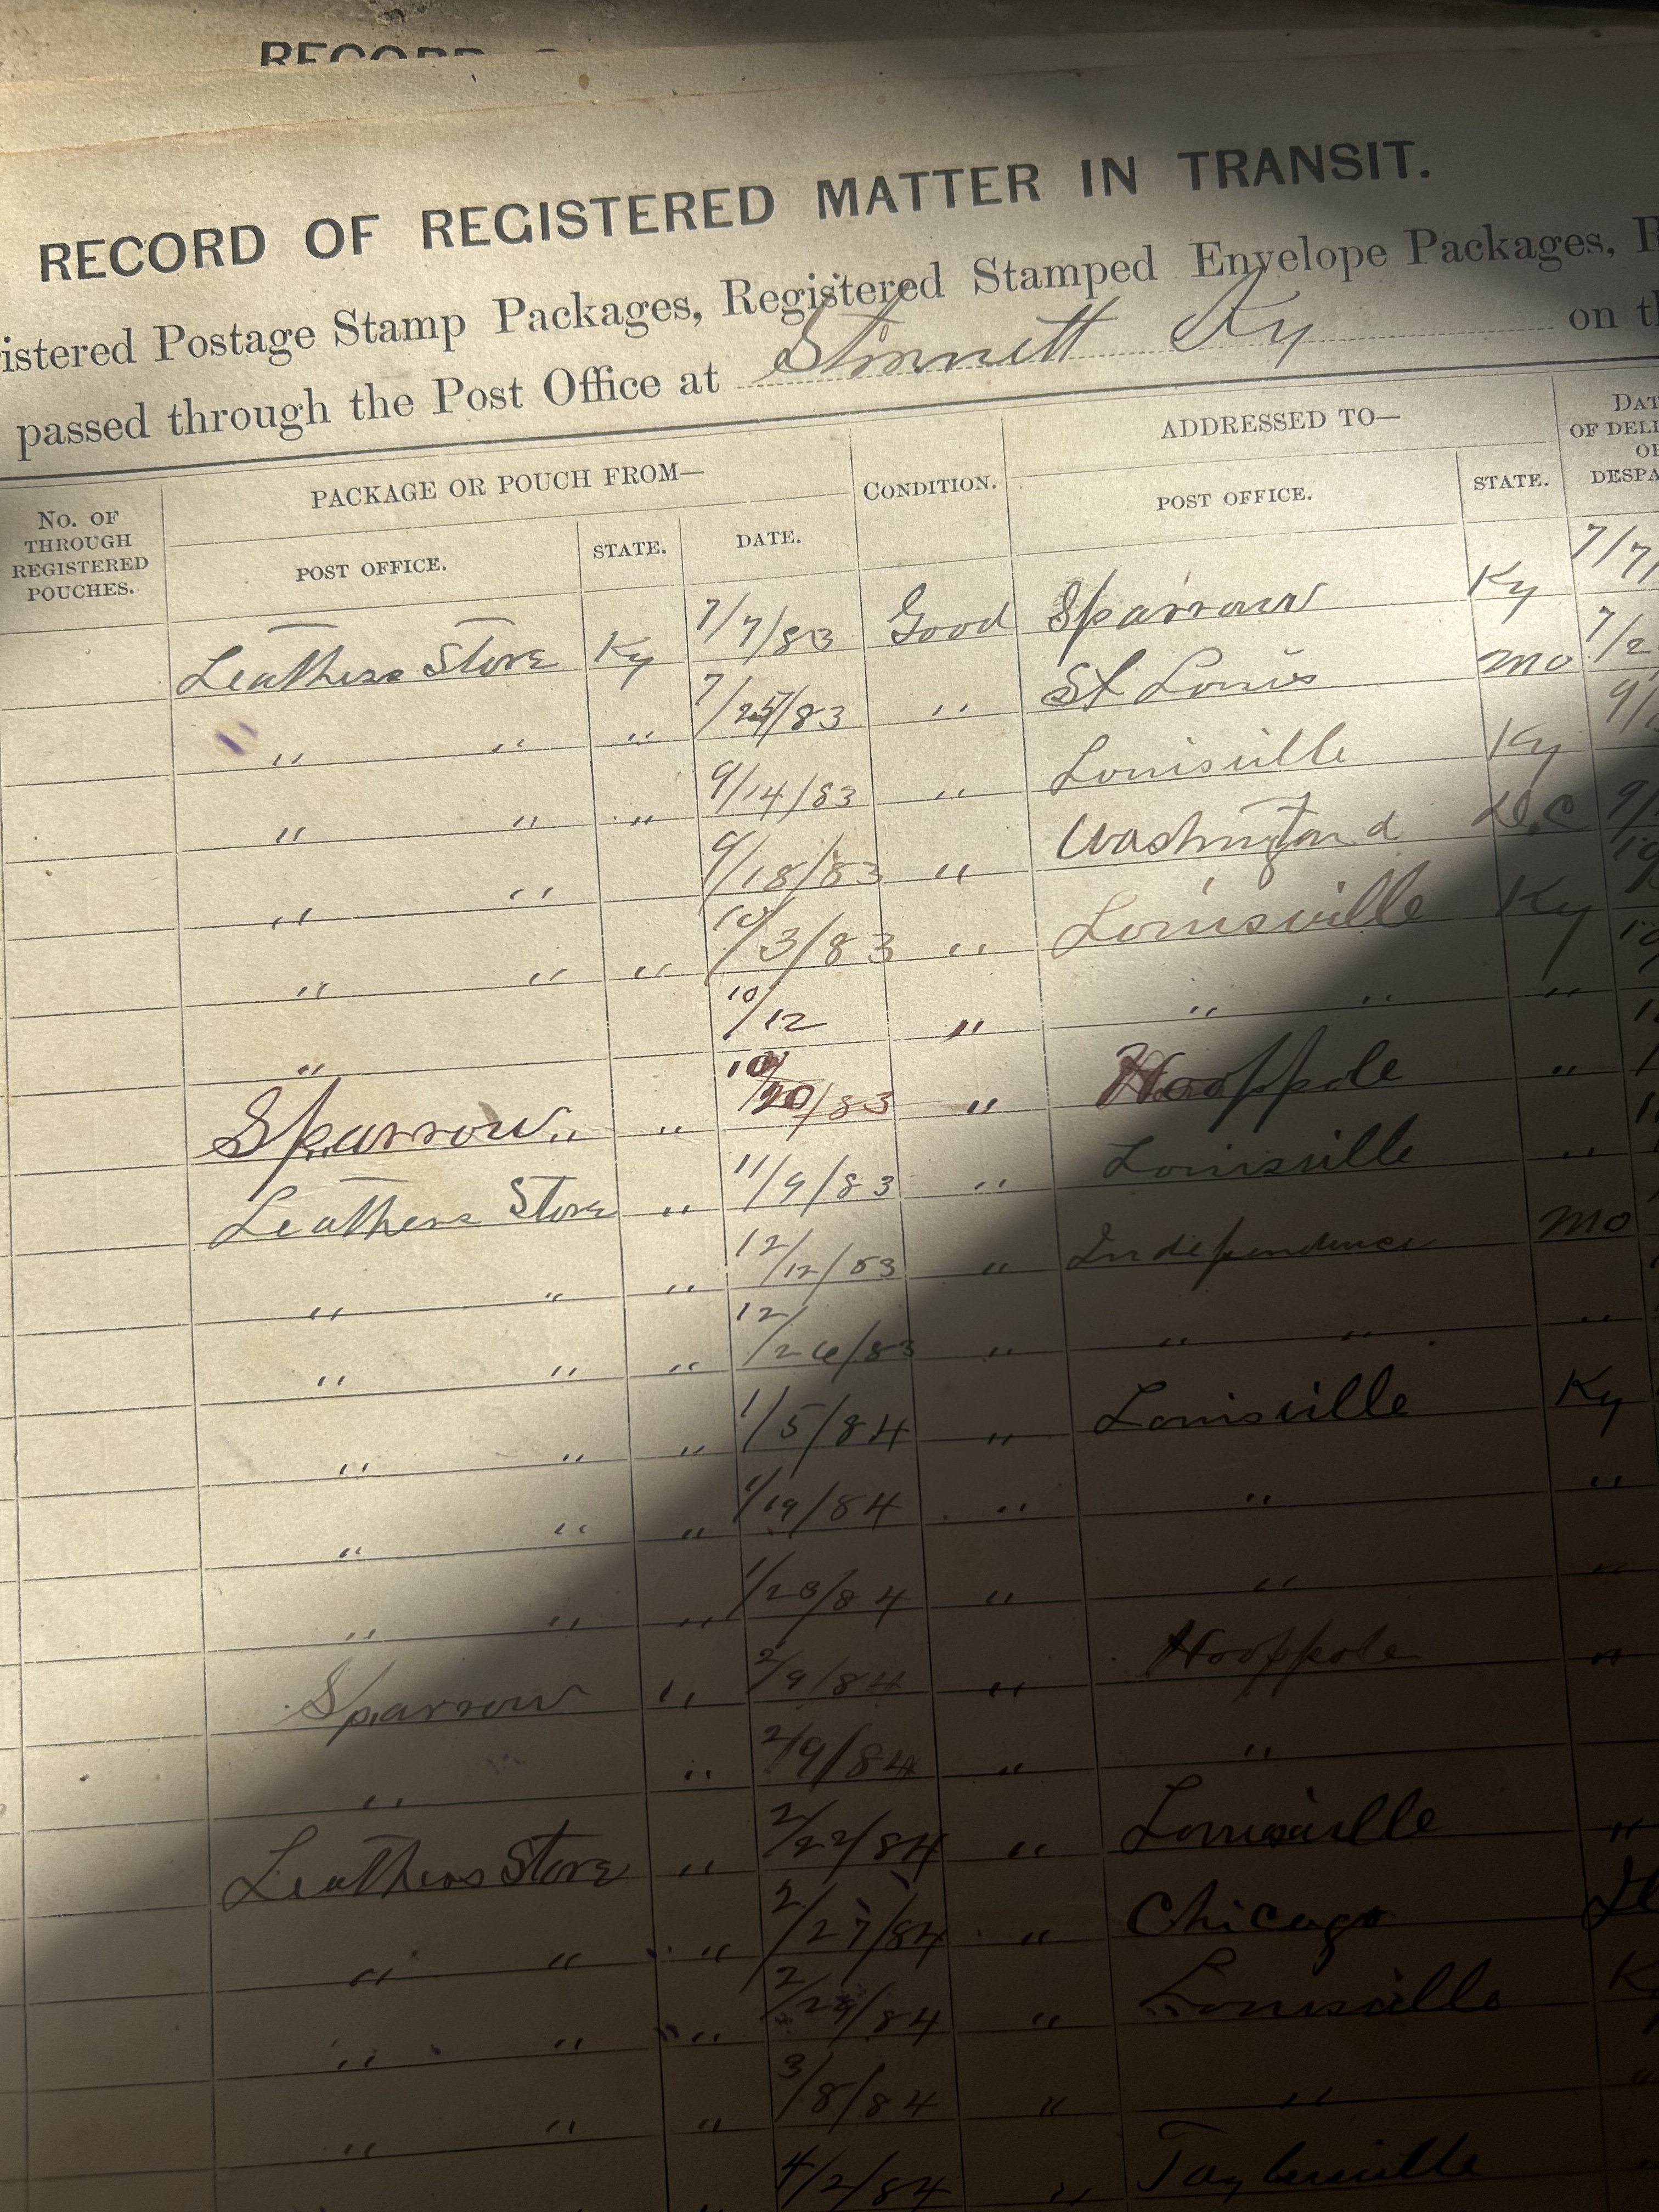 RECORD OF REGISTERED MATTER IN TRANSIT.
istered Postage Stamp Packages, Registered Stamped Envelope Packages, R
passed through the Post Office at Stinnett Ky on th
No. OF THROUGH REGISTERED POUCHES.
PACKAGE OR POUCH FROM—
POST OFFICE.
STATE.
DATE.
CONDITION.
ADDRESSED TO—
POST OFFICE.
STATE.
DAT
OF DELI
OF
DESPA
Leathers Store Ky 7/7/83 Good Sparrow Ky 7/7/
" " " 7/25/83 " St Louis Mo 7/2
" " " 9/14/83 " Louisville Ky 9/
" " 9/18/83 " Washington d D.C 9/
" " " 10/3/83 " Louisville Ky 10
" 10/12 " " " " 10
Sparrow " " 10/20/83 " Hooppole " 1
Leathers Store " 11/9/83 " Louisville " 1
" " " 12/12/83 " Independence Mo
" " " 12/26/83 " " " "
" " " 1/5/84 " Louisville Ky
" " " 1/19/84 " " "
" " " 1/23/84 " " "
Sparrow " 2/9/84 " Hooppole "
" " 2/9/84 " "
Leathers Store " 2/22/84 " Louisville "
" " " 2/27/84 " Chicago Il
" " " 2/29/84 " Louisville K
" " " 3/8/84 " " "
" 4/2/84 " Taylorsville